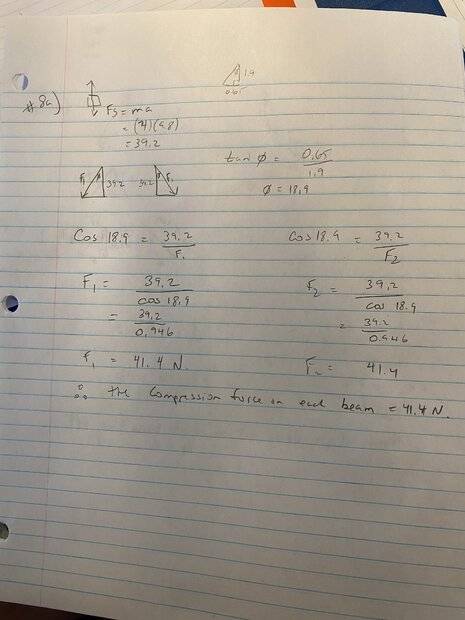 1.9
0.65
#8a)
Fg = ma
= (4)(9.8)
= 39.2
tan Ø = 0.65 / 1.9
Ø = 18.9
F₁ 39.2 39.2 F₂
Cos 18.9 = 39.2 / F₁
Cos 18.9 = 39.2 / F₂
F₁ = 39.2 / cos 18.9
F₂ = 39.2 / cos 18.9
= 39.2 / 0.946
= 39.2 / 0.946
F₁ = 41.4 N.
F₂ = 41.4
∴ the compression force on each beam = 41.4 N.